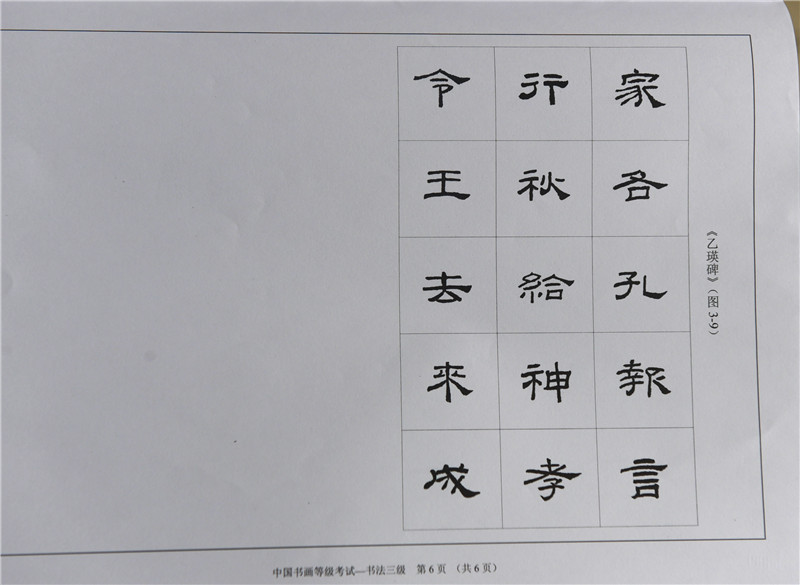 《乙瑛碑》（图3-9）
家各孔報言
行秋給神孝
令王去来成
中国书画等级考试—书法三级 第6页 （共6页）